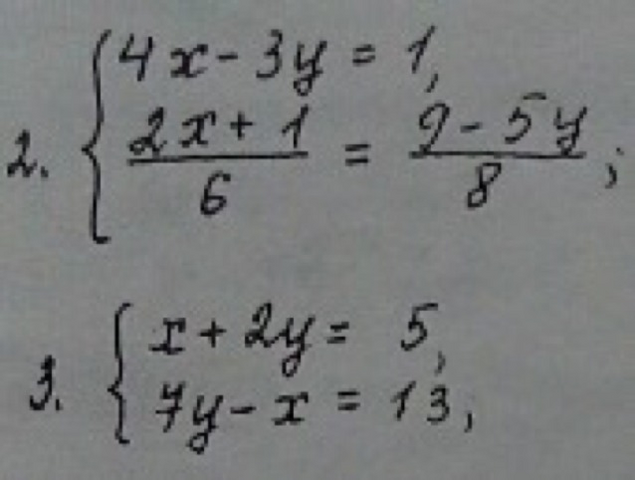 2. { 4x - 3y = 1,
(2x + 1)/6 = (9 - 5y)/8;
3. { x + 2y = 5,
7y - x = 13,